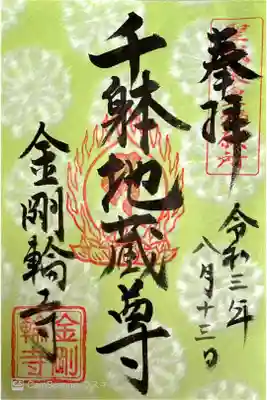 奉拝
令和三年
八月十三日
千躰地蔵尊
金剛輪寺
金剛
輪寺